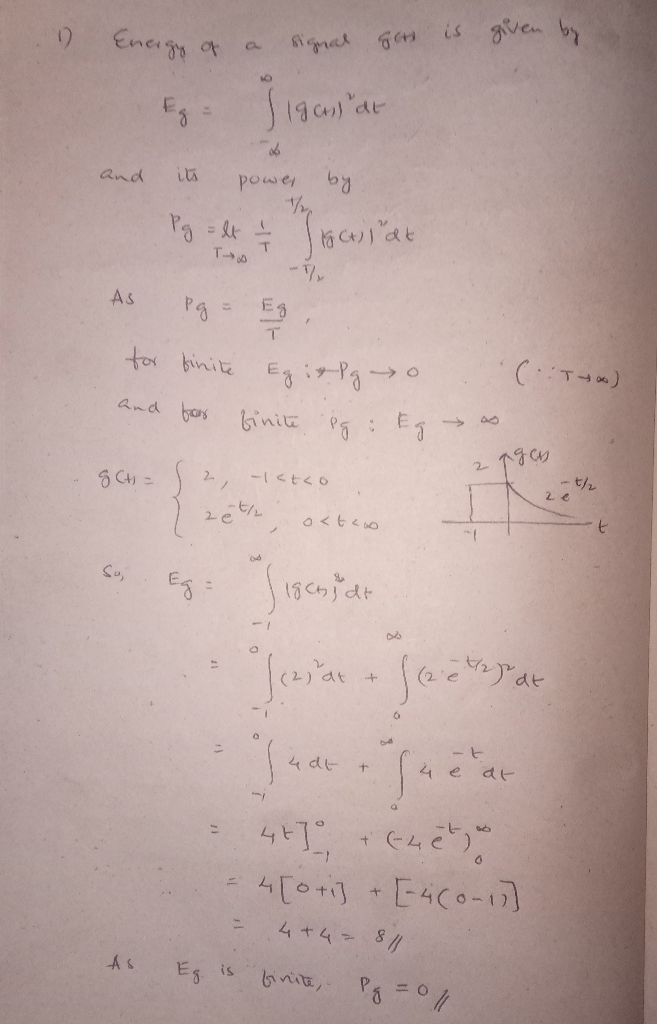 1) Energy of a signal g(t) is given by
Eg = ∫_{-∞}^{∞} |g(t)|² dt
and its power by
Pg = lt_{T→∞} 1/T ∫_{-T/2}^{T/2} |g(t)|² dt
As Pg = Eg/T,
for finite Eg : Pg → 0 (∵ T→∞)
and for finite Pg : Eg → ∞
g(t) = { 2, -1<t<0
2e^{-t/2}, 0<t<∞
2 g(t)
2e^{-t/2}
-1 t
So, Eg = ∫_{-1}^{∞} |g(t)|² dt
= ∫_{-1}^{0} (2)² dt + ∫_{0}^{∞} (2e^{-t/2})² dt
= ∫_{-1}^{0} 4 dt + ∫_{0}^{∞} 4 e^{-t} dt
= 4t]_{-1}^{0} + (-4e^{-t})_{0}^{∞}
= 4[0+1] + [-4(0-1)]
= 4+4 = 8//
As Eg is finite, Pg = 0//